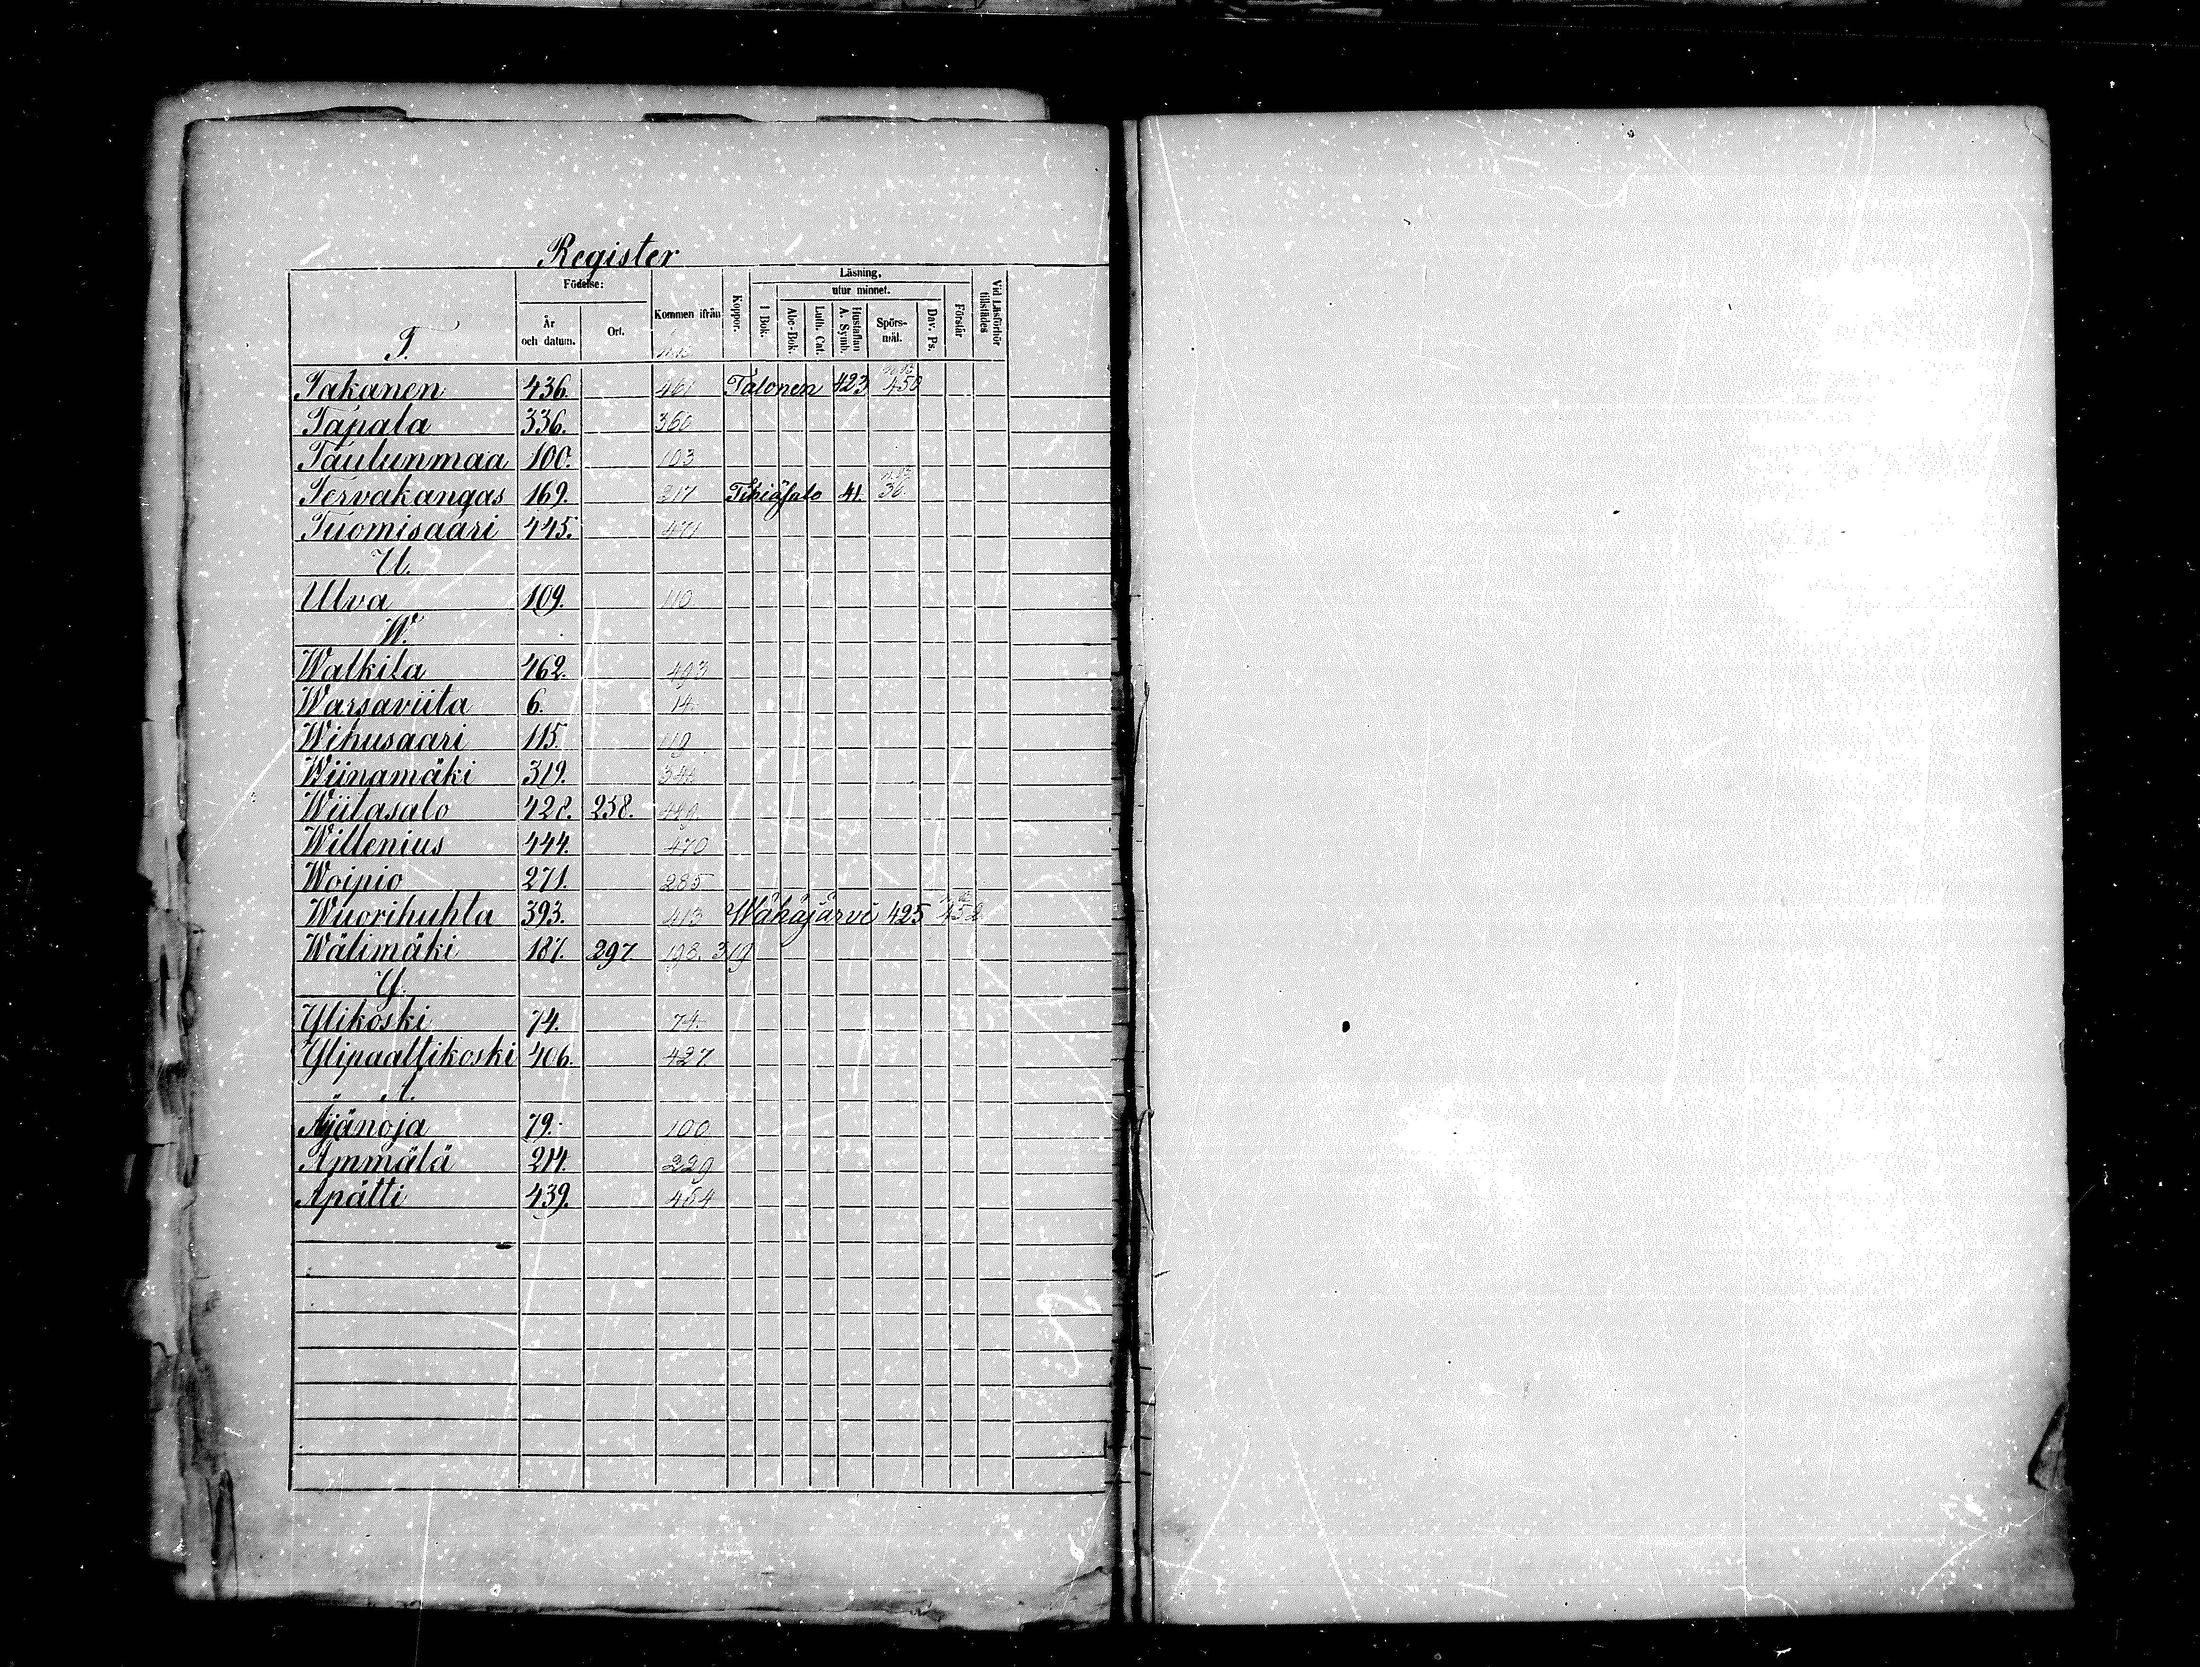 Register
Födelse:
Läsning,
utur minnet.
År och datum.
Ort.
Kommen ifrån
Koppor.
I Bok.
Abc-Bok.
Luth. Cat.
Hustaflan A. Symb.
Spörs-mål.
Dav. Ps.
Förstår
Vid Läsförhör tillstädes
T.
Takanen 436. 461 Talonen 423 450
Tapala 336. 360
Taulunmaa 100. 103
Tervakangas 169. 217 41. 36
Tuomisaari 445. 471
U.
Ulva 109. 110
W.
Walkila 462. 493
Warsaviita 6. 14.
Wihusaari 115. 119
Wiinamäki 319. 344.
Wiitasalo 428. 238.
Willenius 444. 470
Woipio 271. 285
Wuorihuhta 393. 413 Wähäjärvi 425 452
Wälimäki 187. 297 198. 319
Y.
Ylikoski 74. 74.
Ylipaattikoski 406. 427.
Ä.
Äijänoja 79. 100
Ämmälä 214. 229
Äpätti 439. 464